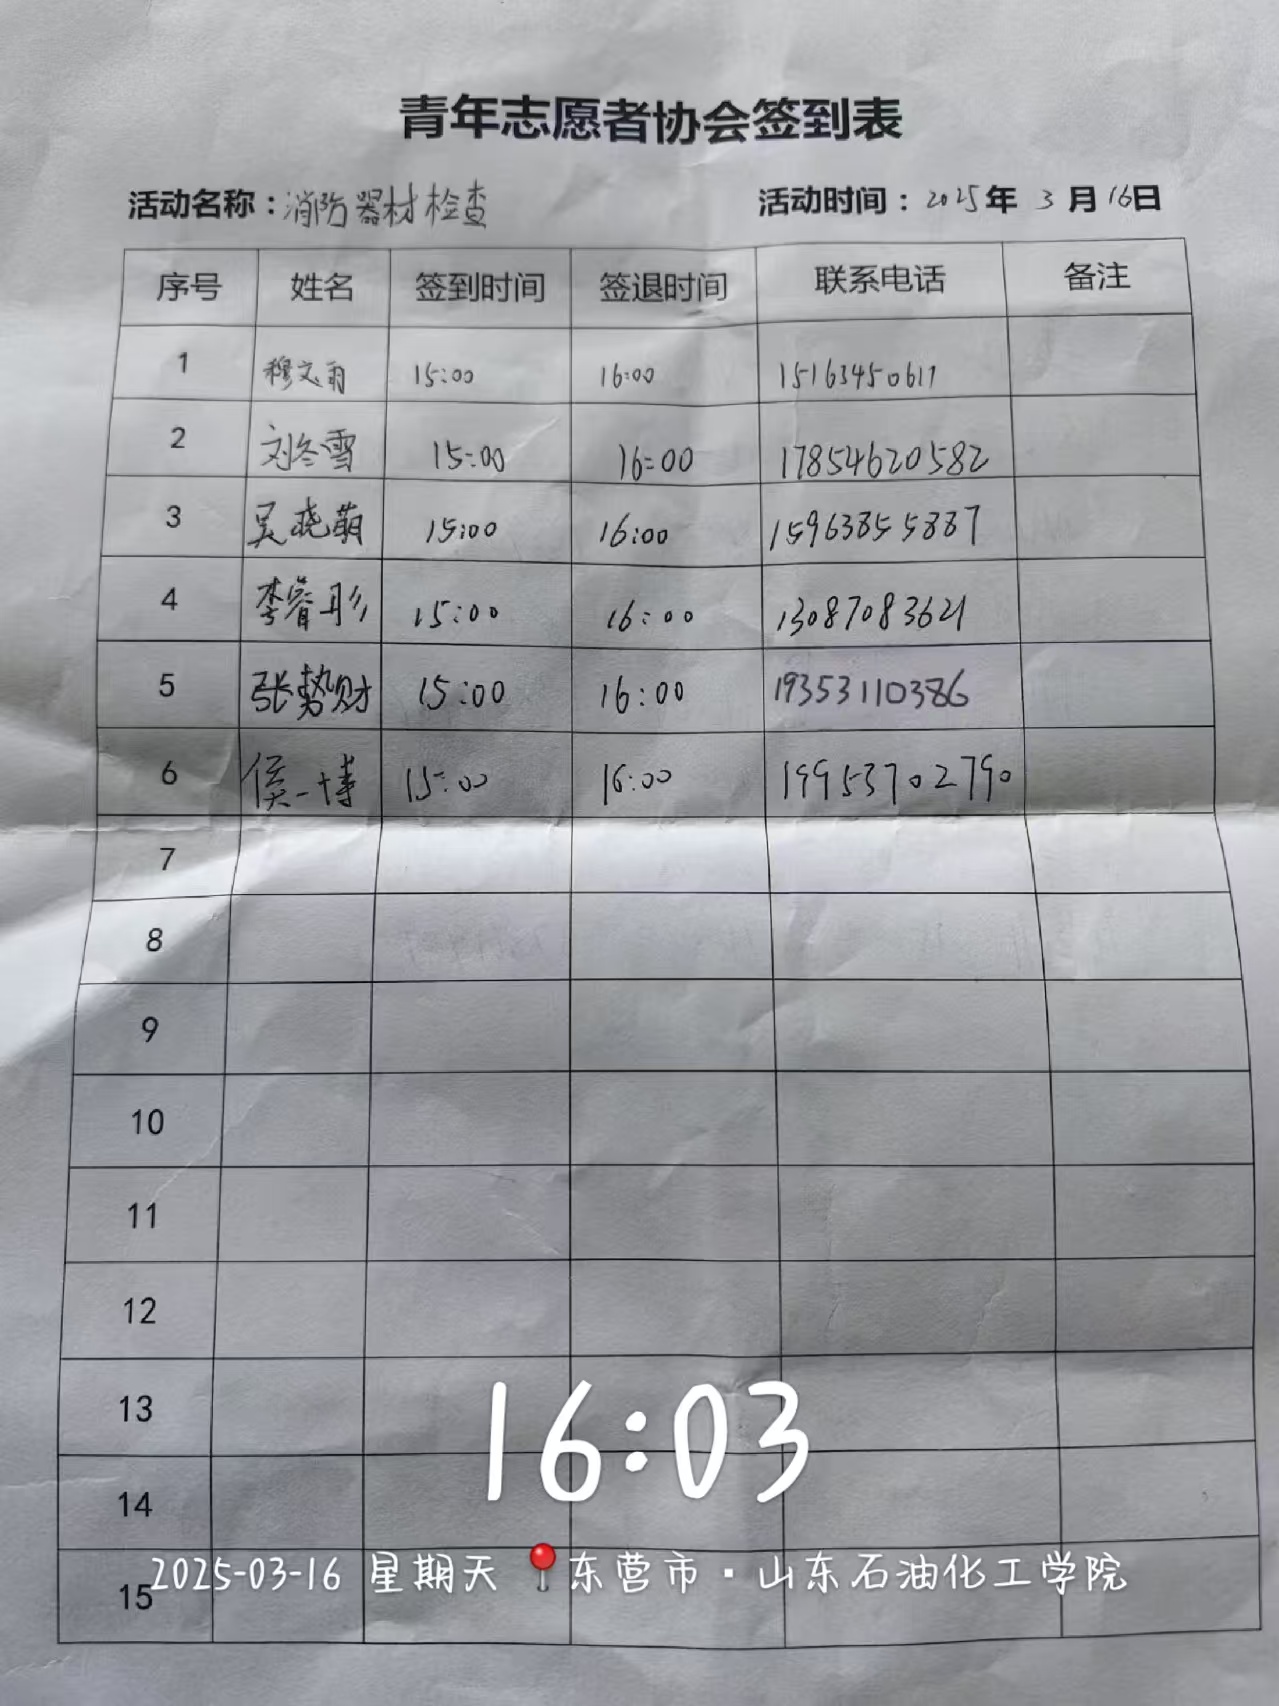 青年志愿者协会签到表
活动名称：消防器材检查 活动时间：2025年 3月16日
序号 姓名 签到时间 签退时间 联系电话 备注
1 穆文雨 15:00 16:00 15163450617
2 刘冬雪 15:00 16:00 17854620582
3 吴晓萌 15:00 16:00 15963855887
4 李睿彤 15:00 16:00 13087083621
5 张势财 15:00 16:00 19353110386
6 侯一博 15:00 16:00 19953702790
7
8
9
10
11
12
13
16:03
14
15
2025-03-16 星期天 📍东营市·山东石油化工学院